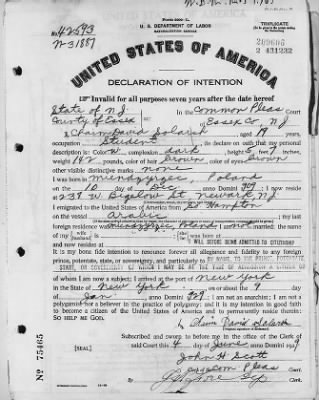 Form 2203-L
TRIPLICATE
U. S. DEPARTMENT OF LABOR
NATURALIZATION SERVICE
No. 42593
N-31887
UNITED STATES OF AMERICA
DECLARATION OF INTENTION
Invalid for all purposes seven years after the date hereof
State of N.J. In the Common Pleas Court
County of Essex of Essex Co, N.J.
I, Chaim David Solarsh, aged 19 years,
occupation Student, do declare on oath that my personal
description is: Color W, complexion dark, height 5 feet 7 inches,
weight 142 pounds, color of hair brown, color of eyes brown
other visible distinctive marks none
I was born in Poland
on the 10 day of Dec, anno Domini 1909; I now reside
at 239 W Bigelow St Newark, N.J.
I emigrated to the United States of America from So. Hampton
on the vessel Arabic; my last
foreign residence was Poland; I am not married; the name
of my
and now resides at I WILL BEFORE BEING ADMITTED TO CITIZENSHIP
It is my bona fide intention to renounce forever all allegiance and fidelity to any foreign
prince, potentate, state, or sovereignty, and particularly to BY NAME, TO THE PRINCE, POTENTATE,
STATE, OR SOVEREIGNTY OF WHICH I MAY BE AT THE TIME OF ADMISSION A CITIZEN OR
of whom I am now a subject; I arrived at the port of New York
in the State of New York on or about the 9 day
of Jan, anno Domini 1929; I am not an anarchist; I am not a
polygamist nor a believer in the practice of polygamy; and it is my intention in good faith
to become a citizen of the United States of America and to permanently reside therein:
SO HELP ME GOD.
Chaim David Solarsh
Subscribed and sworn to before me in the office of the Clerk of
said Court this 4 day of June anno Domini 1929
John H Scott
Common Pleas
No 75465